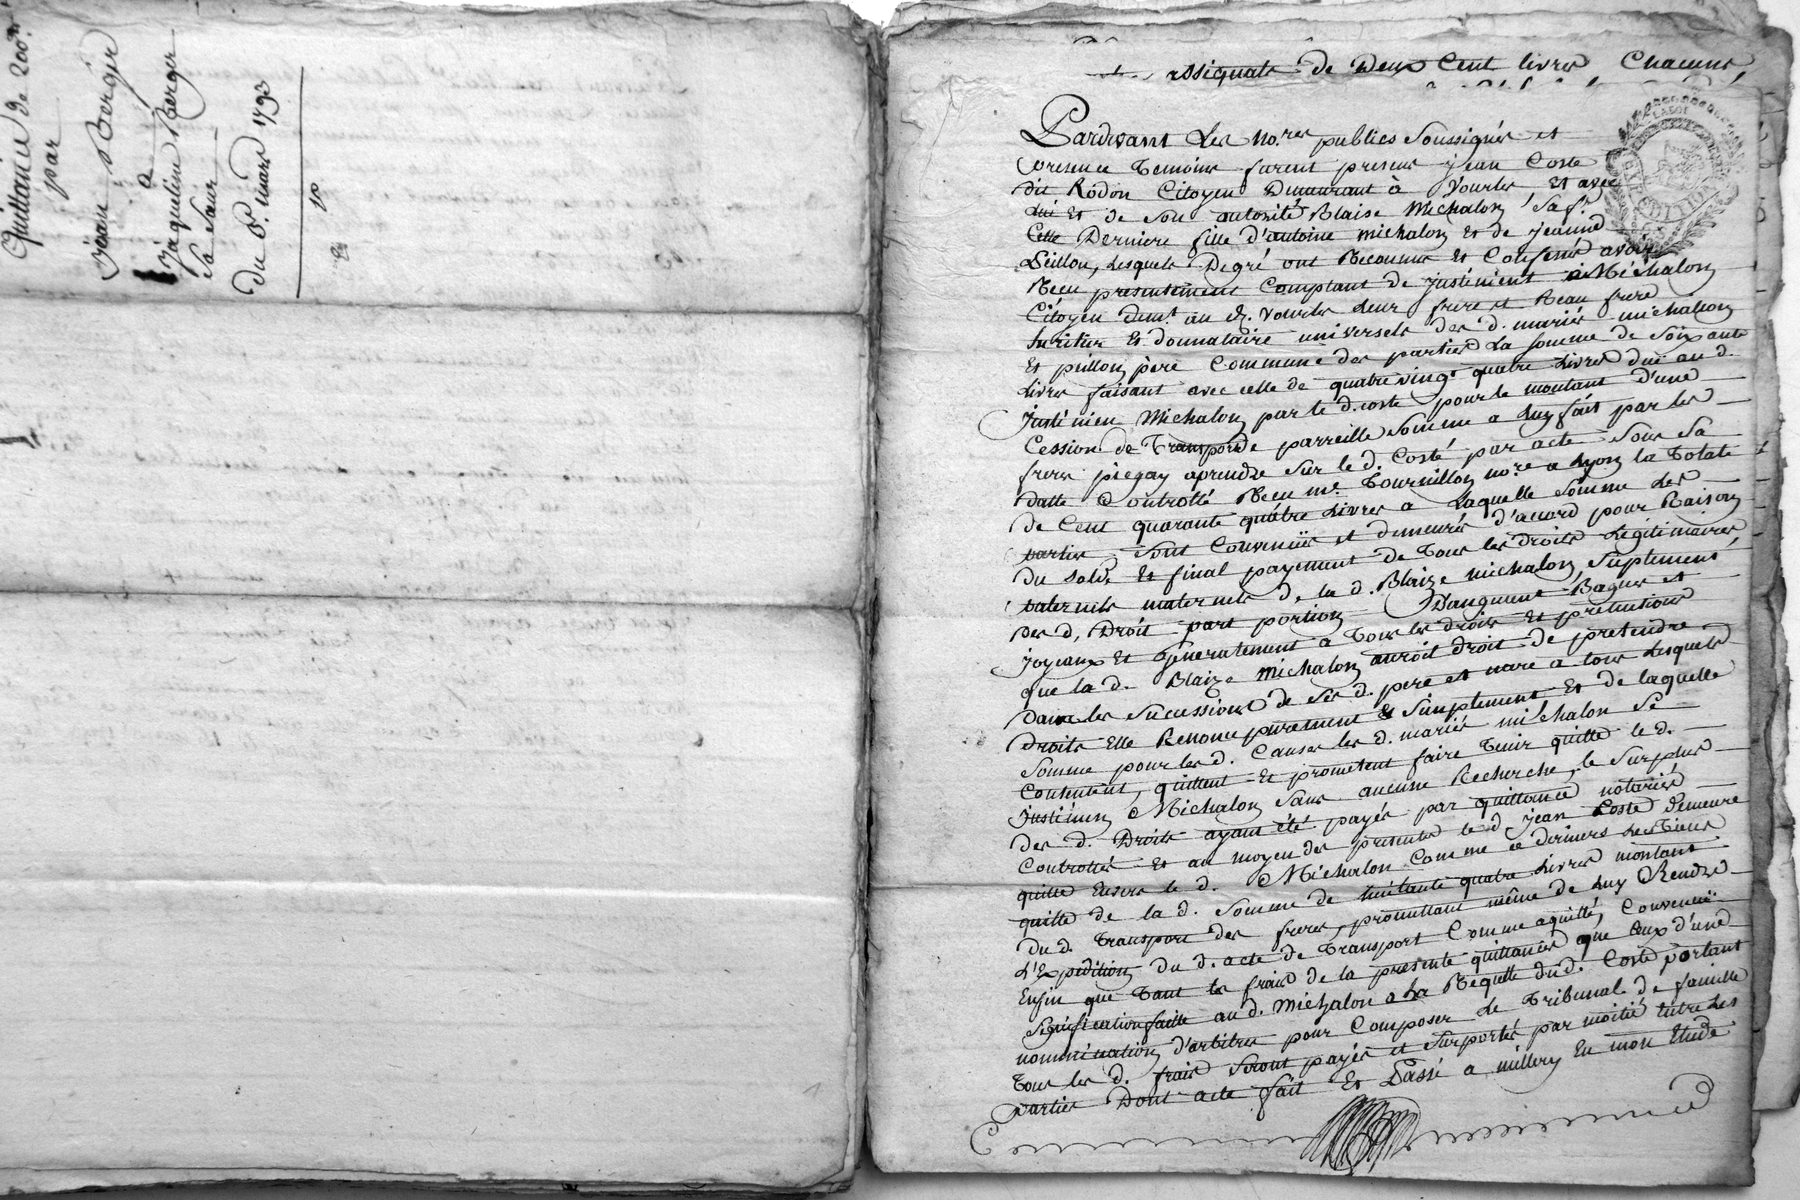 Quittance de 200
par
Jean Berger
à
Jaqueline Berger
sa sœur
du 8 mars 1793
assignats de deux Cent livres Chacune
Pardevant Les no.res publics Soussignés et
presence Temoins furent presens jean Coste
dit Rodon Citoyen Demeurant à Vourles et avec
lui Et de Son autorité Blaise Michalon, Sa f.e
Cette Derniere fille d'antoine michalon Et de jeanne
Peillon, lesquels Degré ont Reconnus Et Confessé avoir
Reçu presentement Comptant de justinien Michalon
Citoyen dem.t au d. Vourles Leur frere et Beau frere
heritier Et donnataire universels des d. mariés michallon
Et peillon père Commune des parties La somme de Soixante
Livres faisant avec celle de quatrevingt quatre Livres due au d.
Justinien Michalon par le d. coste pour le montant d'une
Cession de Transport de parreille Somme a Luy fait par les
freres piegay aprendre Sur le d. Costé par acte Sous Sa
Datte Controllé Reçu me. Tournillon no.re a Lyon la Totale
de Cent quarante quatre Livres a Laquelle Somme Les
parties Sont Convenüs et demeurés d'accord pour Raison
du solde Et final payement de Tous les droits Légitimaires
paternels maternels de la d. Blaize michalon, Suplement
des d. Droit part portion Bagues et
joyeaux Et Généralement a Tous les droits Et pretentions
que la d. Blaize Michalon auroit droit de pretendre
Dans les Sucessions de Ses d. pere et mere a tous Lesquels
droits Elle Renonce purement & Simplement Et de laquelle
Somme pour les d. Causes les d. mariés michalon Se
Contentent, quittent Et prometent faire Tenir quitte le d.
justinien Michalon Sans aucune Recherche, le Surplus
des d. Droits ayant été payés par quittance notariée
Controllés Et au moyen des presentes le d. jean Coste demeure
quitte Envers le d. Michalon Comme ce derniers Le Tiens
quitte de la d. Somme de huitante quatre Livres montant
Du d. Transport des freres, promettant même de Luy Rendre
L'Expedition du d. acte de Transport Comme aquitté, Convenüs
Enfin que Tant les frais de la presente quittances que Ceux d'une
Signification faitte au d. Michalon a La Requette du d. Coste portant
nommination d'arbitres pour Composer Le Tribunal de famille
Tous les d. frais Seront payés et Surportés par moitié Entre Les
parties Dont acte fait Et Passé a millery En mon Etude